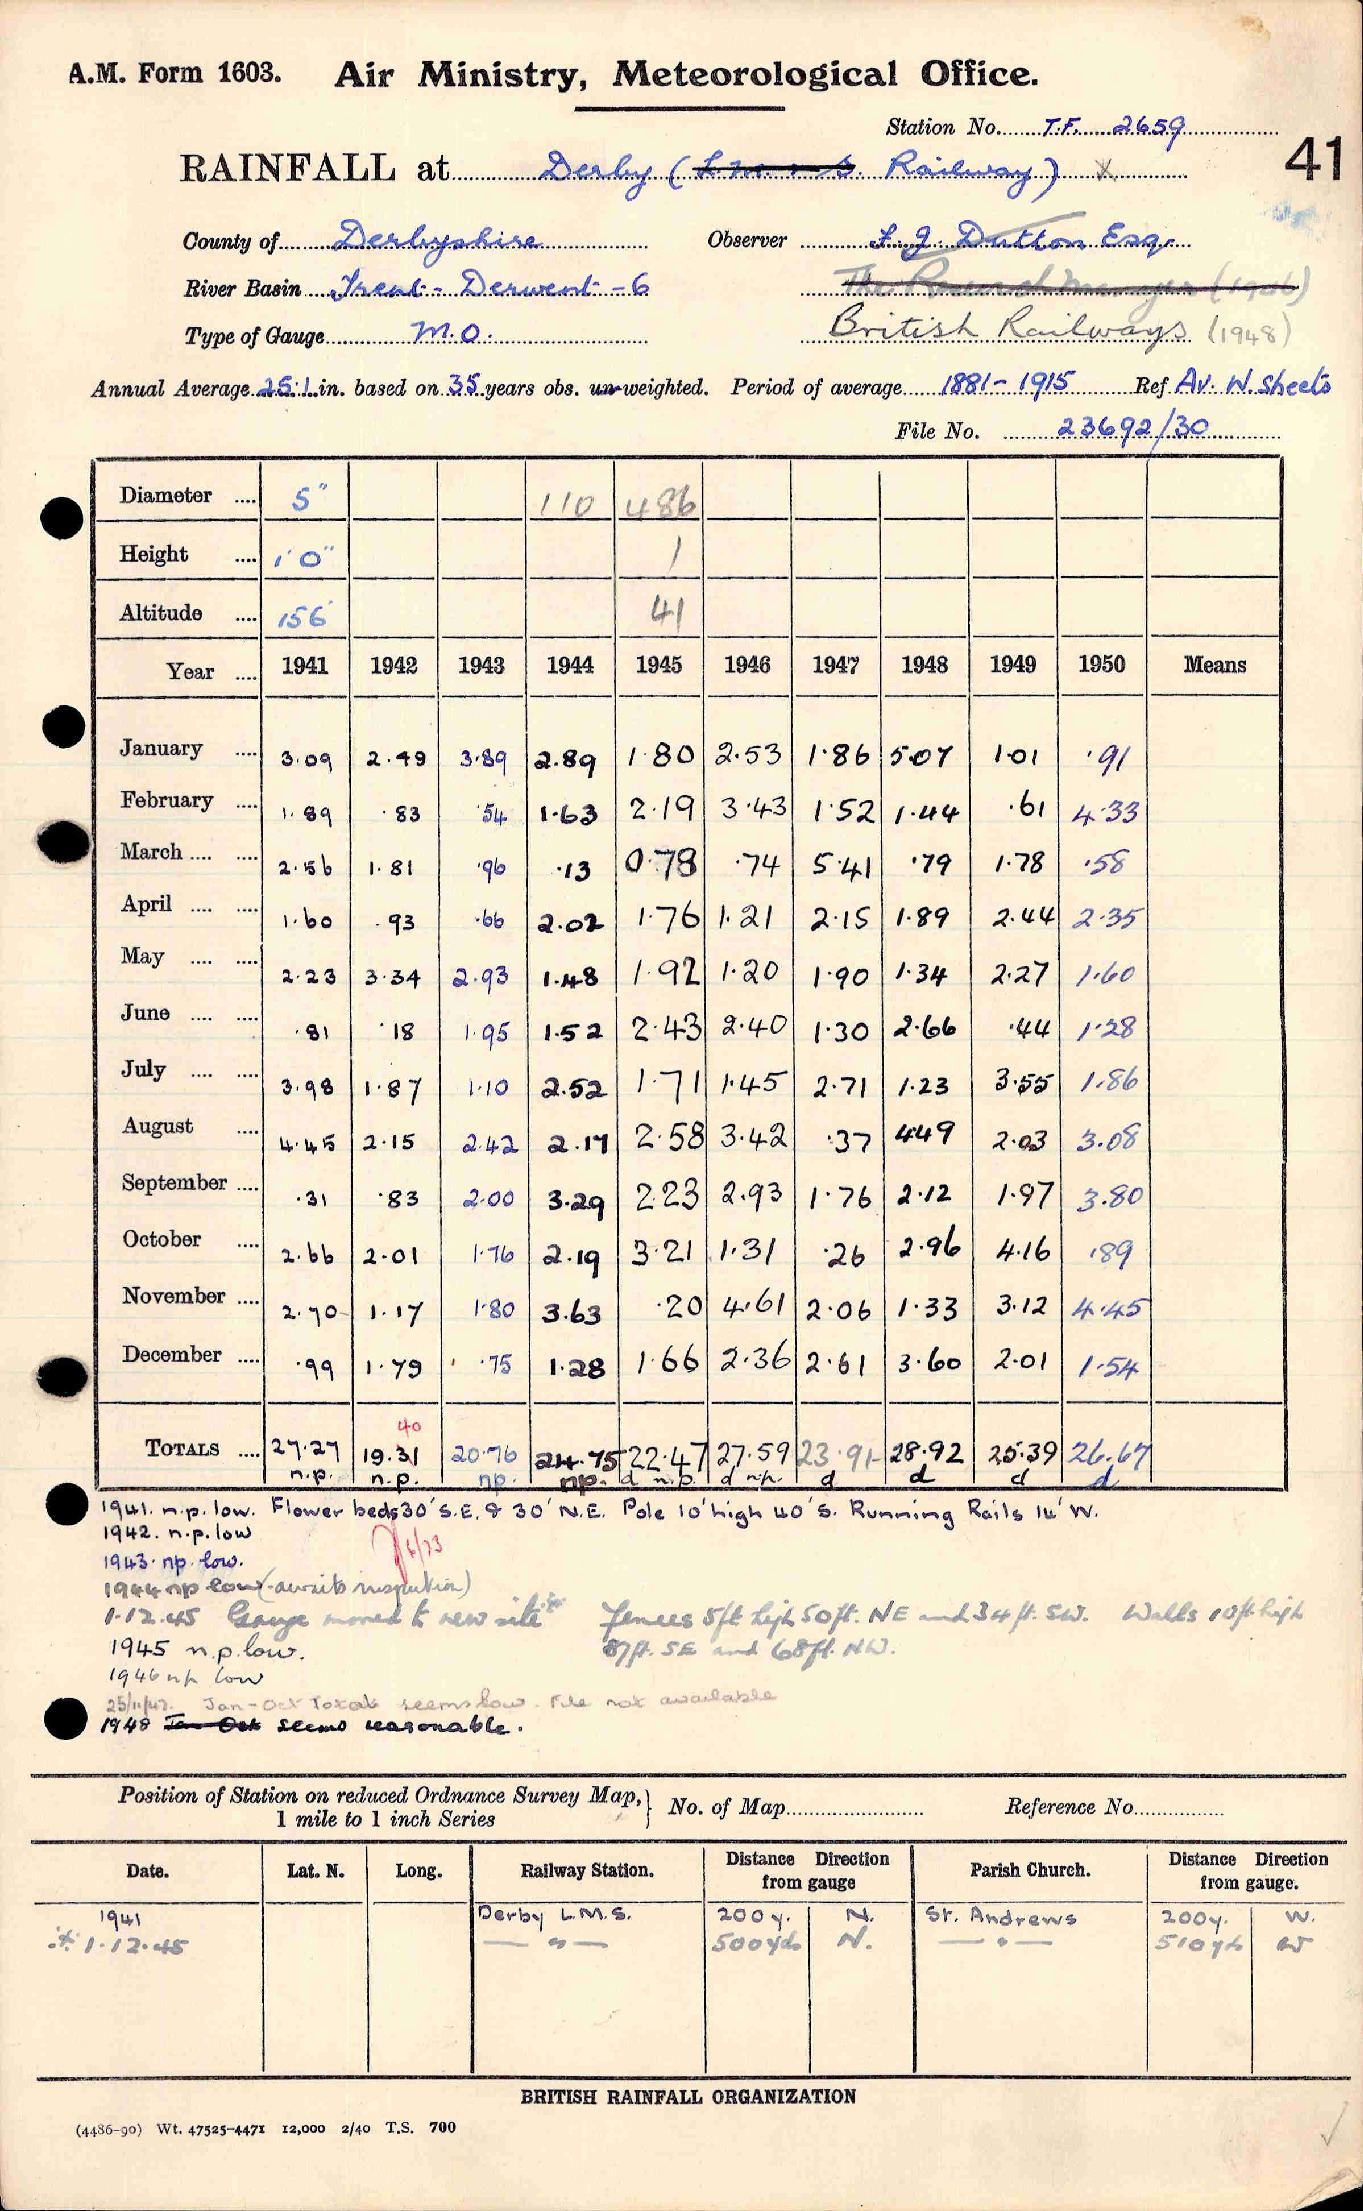 A.M. Form 1603. Air Ministry, Meteorological Office.
Station No. T.F. 2659
41
RAINFALL at Derby (L.M. & S. Railway) X
County of Derbyshire Observer F. J. Dutton Esq.
River Basin Trent - Derwent - 6 The Research Manager (1946)
Type of Gauge M.O. British Railways (1948)
Annual Average 25.1 in. based on 35 years obs. un-weighted. Period of average 1881-1915 Ref Av. W. Sheets
File No. 23692/30
Diameter .... 5" 110 486
Height .... 1' 0" 1
Altitude .... 156 41
Year .... 1941 1942 1943 1944 1945 1946 1947 1948 1949 1950 Means
January .... 3.09 2.49 3.89 2.89 1.80 2.53 1.86 5.07 1.01 .91
February .... 1.89 .83 .54 1.63 2.19 3.43 1.52 1.44 .61 4.33
March .... .... 2.56 1.81 .96 .13 0.78 .74 5.41 .79 1.78 .58
April .... .... 1.60 .93 .66 2.02 1.76 1.21 2.15 1.89 2.44 2.35
May .... .... 2.23 3.34 2.93 1.48 1.92 1.20 1.90 1.34 2.27 1.60
June .... .... .81 .18 1.95 1.52 2.43 2.40 1.30 2.66 .44 1.28
July .... .... 3.98 1.87 1.10 2.52 1.71 1.45 2.71 1.23 3.55 1.86
August .... 4.45 2.15 2.42 2.17 2.58 3.42 .37 4.49 2.03 3.08
September .... .31 .83 2.00 3.29 2.23 2.93 1.76 2.12 1.97 3.80
October .... 2.66 2.01 1.76 2.19 3.21 1.31 .26 2.96 4.16 .89
November .... 2.70 1.17 1.80 3.63 .20 4.61 2.06 1.33 3.12 4.45
December .... .99 1.79 .75 1.28 1.66 2.36 2.61 3.60 2.01 1.54
40
TOTALS .... 27.27 19.31 20.76 24.75 22.47 27.59 23.91 28.92 25.39 26.67
n.p. n.p. np. np. d n.p. d n.p. d d d d
1941. n.p. low. Flower beds 30' S.E. & 30' N.E. Pole 10' high 40' S. Running Rails 14' W.
1942. n.p. low
1943. np. low.
1944 np low (awaits inspection)
1.12.45 Gauge moved to new site Fences 5ft high 50ft. NE and 34ft. SW. Walls 10ft high
1945 n.p. low. 87ft. SE and 68ft. NW.
1946 n.p. low
25/11/47. Jan-Oct Total seems low. File not available
1948 Jan Oct seems reasonable.
Position of Station on reduced Ordnance Survey Map, 1 mile to 1 inch Series } No. of Map Reference No.
Date. Lat. N. Long. Railway Station. Distance Direction from gauge Parish Church. Distance Direction from gauge.
1941 Derby L.M.S. 200y. N. St. Andrews 200y. W.
1.12.45 — " — 500yds N. — " — 510yds W
BRITISH RAINFALL ORGANIZATION
(4486-90) Wt. 47525-4471 12,000 2/40 T.S. 700